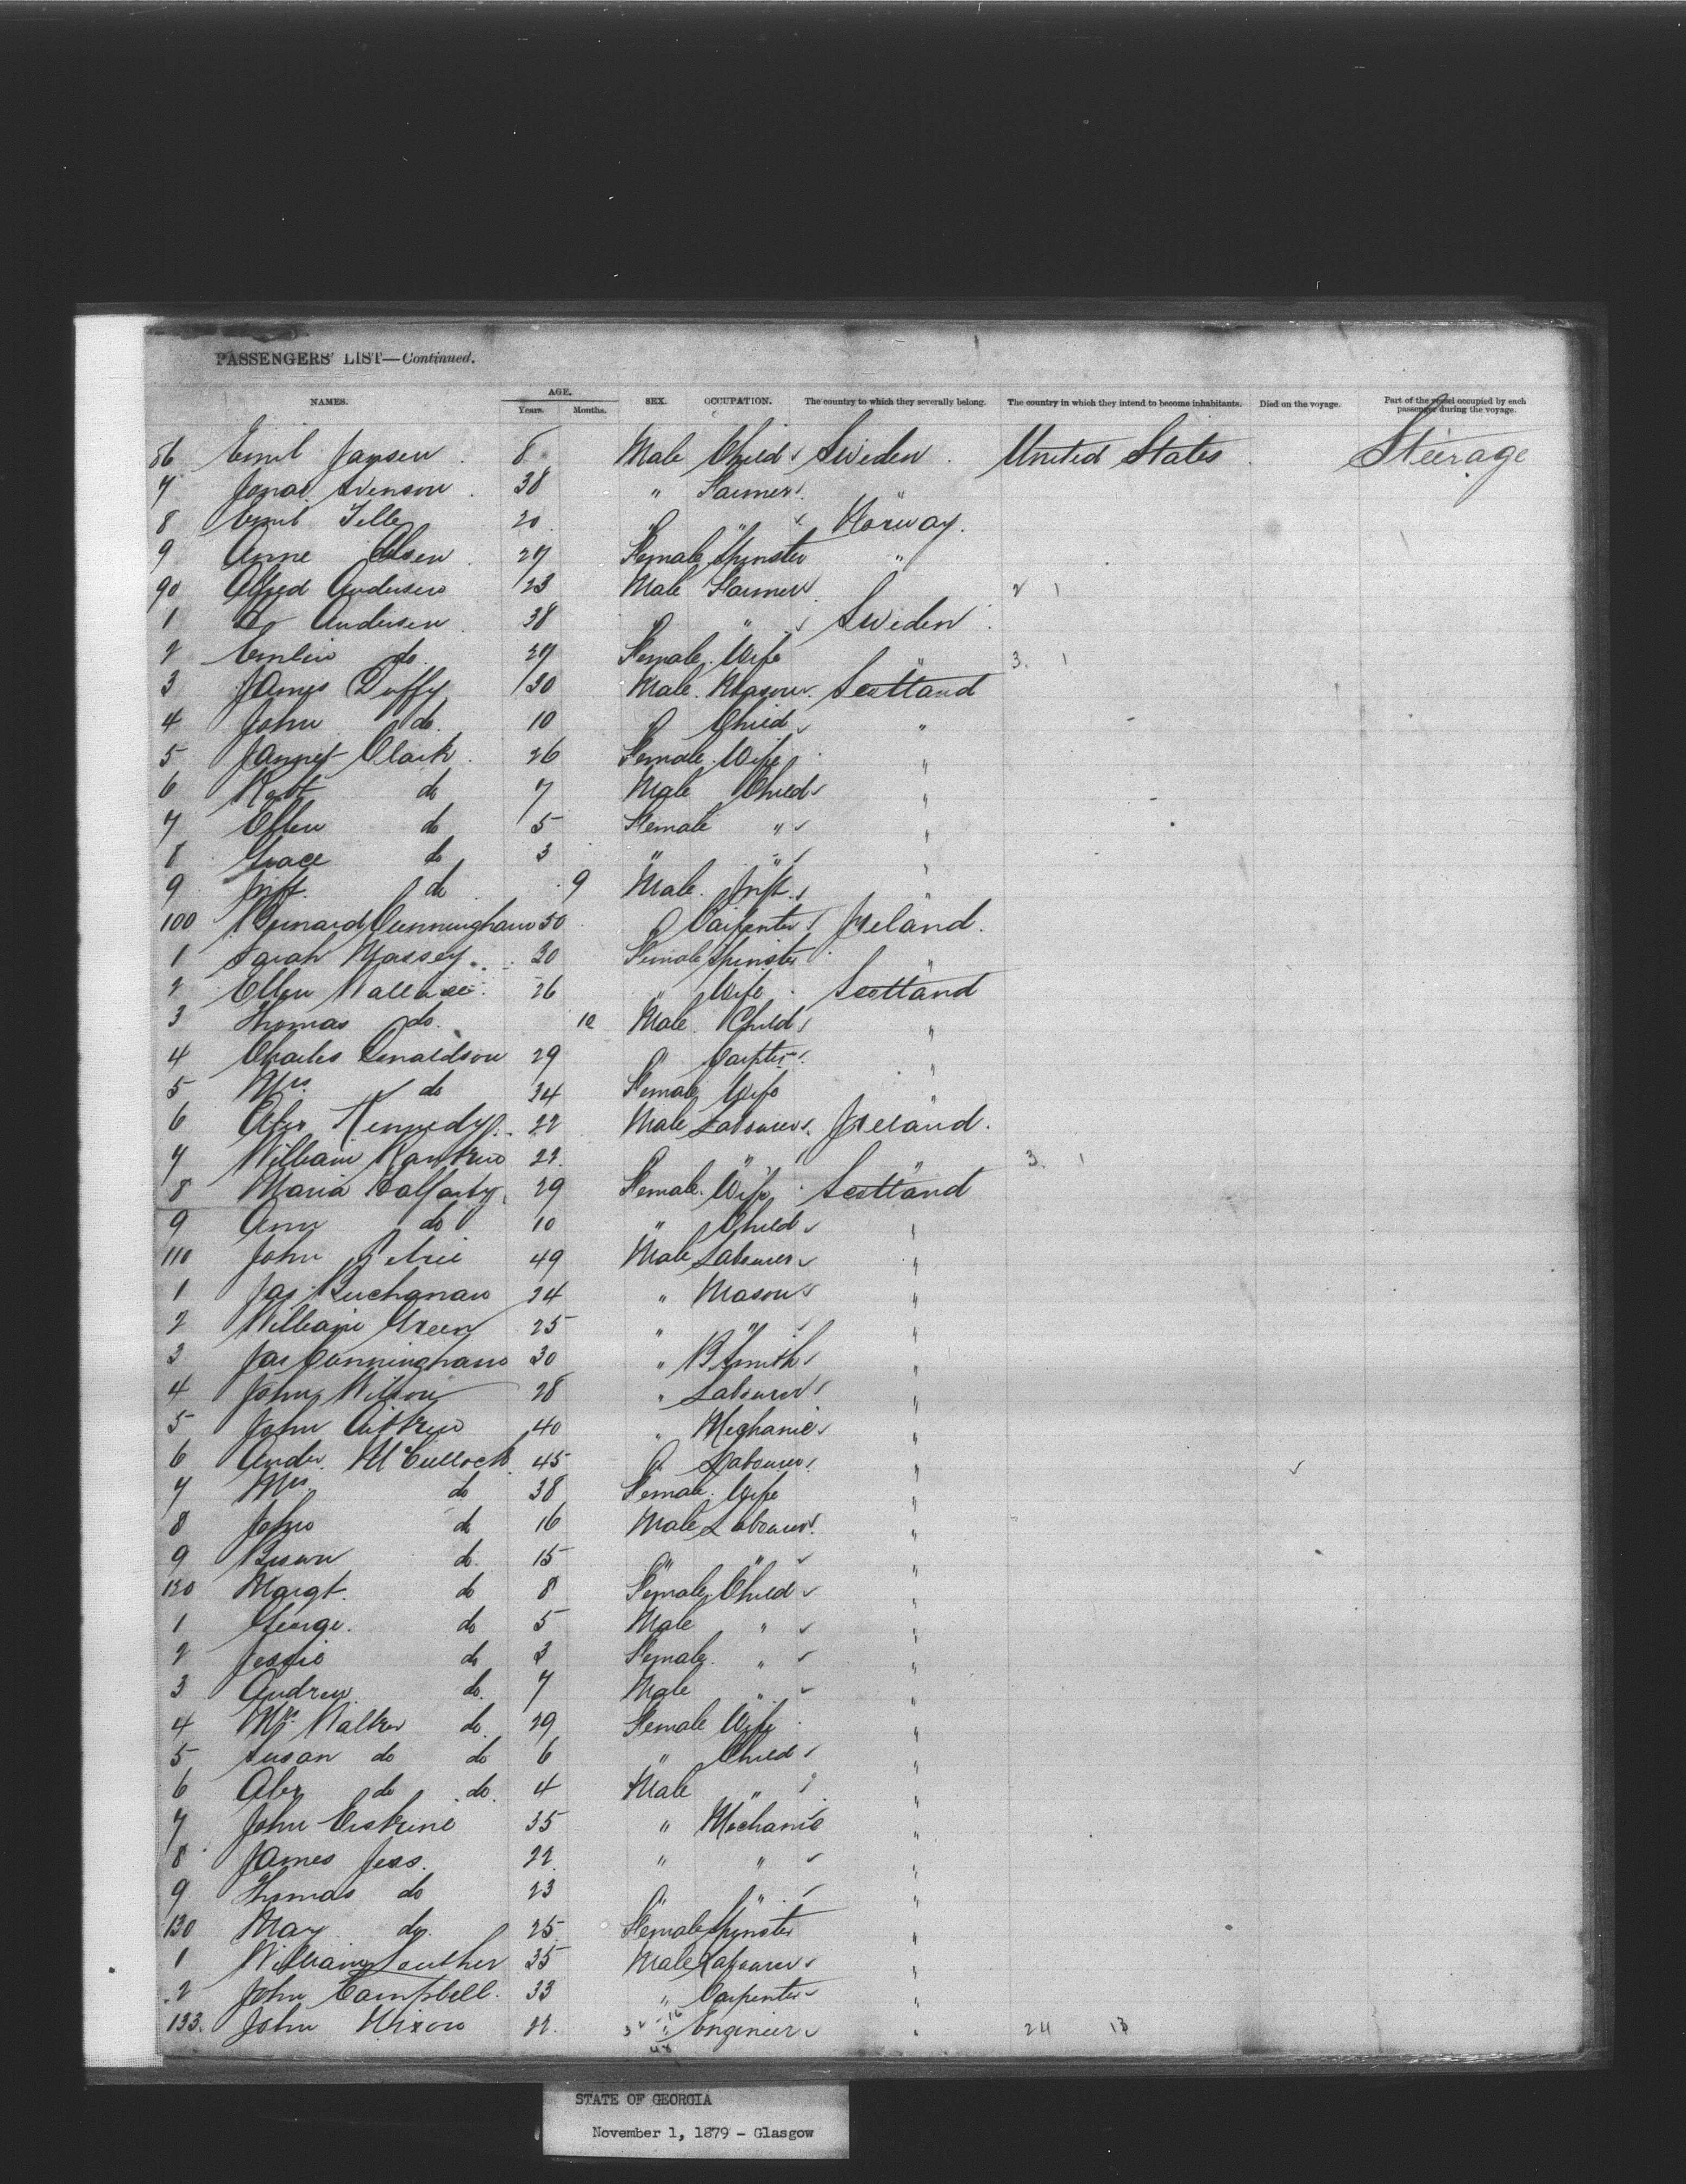 PASSENGERS' LIST—Continued.
NAMES. AGE. Years. Months. SEX. OCCUPATION. The country to which they severally belong. The country in which they intend to become inhabitants. Died on the voyage. Part of the vessel occupied by each passenger during the voyage.
86 Emil Jansen 8 Male Child Sweden United States Steerage
7 Jonas Svenson 38 " Farmer "
8 Emil 20 " " Norway.
9 Anne Olsen 27 Female Spinster "
90 Alfred Andersen 23 Male Farmer " 2 1
1 Andersen 38 " " Sweden
2 do. 27 Female Wife " 3. 1
3 James Duffy 30 Male Mason Scotland
4 John do. 10 " Child "
5 Jannet Clark 26 Female Wife "
6 Robt do 7 Male Child "
7 Ellen do 5 Female " "
8 Grace do 3 " " "
9 Inft. do 9 Male Inft. "
100 Bernard Cunningham 50 " Carpenter Ireland.
1 Sarah Massey 30 Female Spinster "
2 Ellen Wallace 26 " Wife Scotland
3 Thomas do. 10 Male Child "
4 Charles Donaldson 29 " Carpter "
5 Mrs. do 34 Female Wife "
6 Alex Kennedy 22 Male Labourer Ireland.
7 William 22 " " " 3. 1
8 Maria 29 Female Wife Scotland
9 Ann do 10 " Child "
110 John Petrie 49 Male Labourer "
1 Jas Buchanan 24 " Mason "
2 William Green 25 " " "
3 Jas Cunningham 30 " B Smith "
4 John Wilson 28 " Labourer "
5 John Aitken 40 " Mechanic "
6 Andw. McCulloch 45 " Labourer "
7 Mrs. do 38 Female Wife "
8 John do 16 Male Labourer "
9 Brown do 15 " " "
120 Margt. do 8 Female Child "
1 George. do 5 Male " "
2 Jessie do 3 Female " "
3 Andrew do. 7 Male " "
4 Mrs. Walker do. 29 Female Wife "
5 Susan do do 6 " Child "
6 Alex do do. 4 Male " "
7 John Erskine 35 " Mechanic "
8 James Jess. 22 " " "
9 Thomas do 23 " " "
130 Mary do. 25 Female Spinster "
1 William Souther 35 Male Labourer "
2 John Campbell 33 " Carpenter "
133. John Nixon 22. " Engineer " 24 13
STATE OF GEORGIA
November 1, 1879 - Glasgow